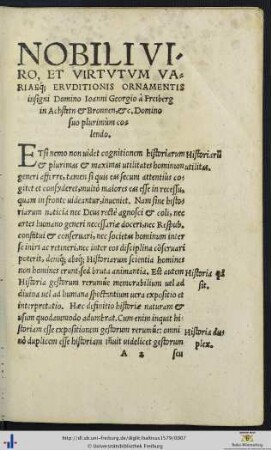 NOBILI VI
RO, ET VIRTVTVM VA-
RIAEQ; ERVDITIONIS ORNAMENTIS
insigni Domino Ioanni Georgio à Freiberg
in Achsteten & Bronnen, &c. Domino
suo plurimùm co-
lendo.
ETsi nemo non uidet cognitionem historiarum
& plurimas & maximas utilitates hominum
generi afferre, tamen si quis eas secum attentius
cogitet et consyderet, multò maiores eas esse in recessu,
quàm in fronte uideantur, inueniet. Nam sine histo-
riarum noticia nec Deus rectè agnosci & coli, nec
artes humano generi necessariæ doceri, nec Respub.
constitui & conseruari, nec societas hominum inter
se iniri ac retineri, nec inter eos disciplina cōseruari
poterit, deniq; absq; Historiarum scientia homines
non homines erunt, sed bruta animantia. Est autem
Historia gestorum rerumúe memorabilium uel ad
diuina uel ad humana spectantium uera expositio et
interpretatio. Hæc definitio historiæ naturam &
usum quodammodo adumbrat. Cum enim inquit hi-
storiam esse expositionem gestorum rerumúe: omni-
nò duplicem esse historiam innuit uidelicet gestorum
A 2 seu
Historiarū
utilitas.
Historia qd
sit.
Historia du-
plex.
http://dl.ub.uni-freiburg.de/diglit/
© Universitätsbibliothek Freiburg